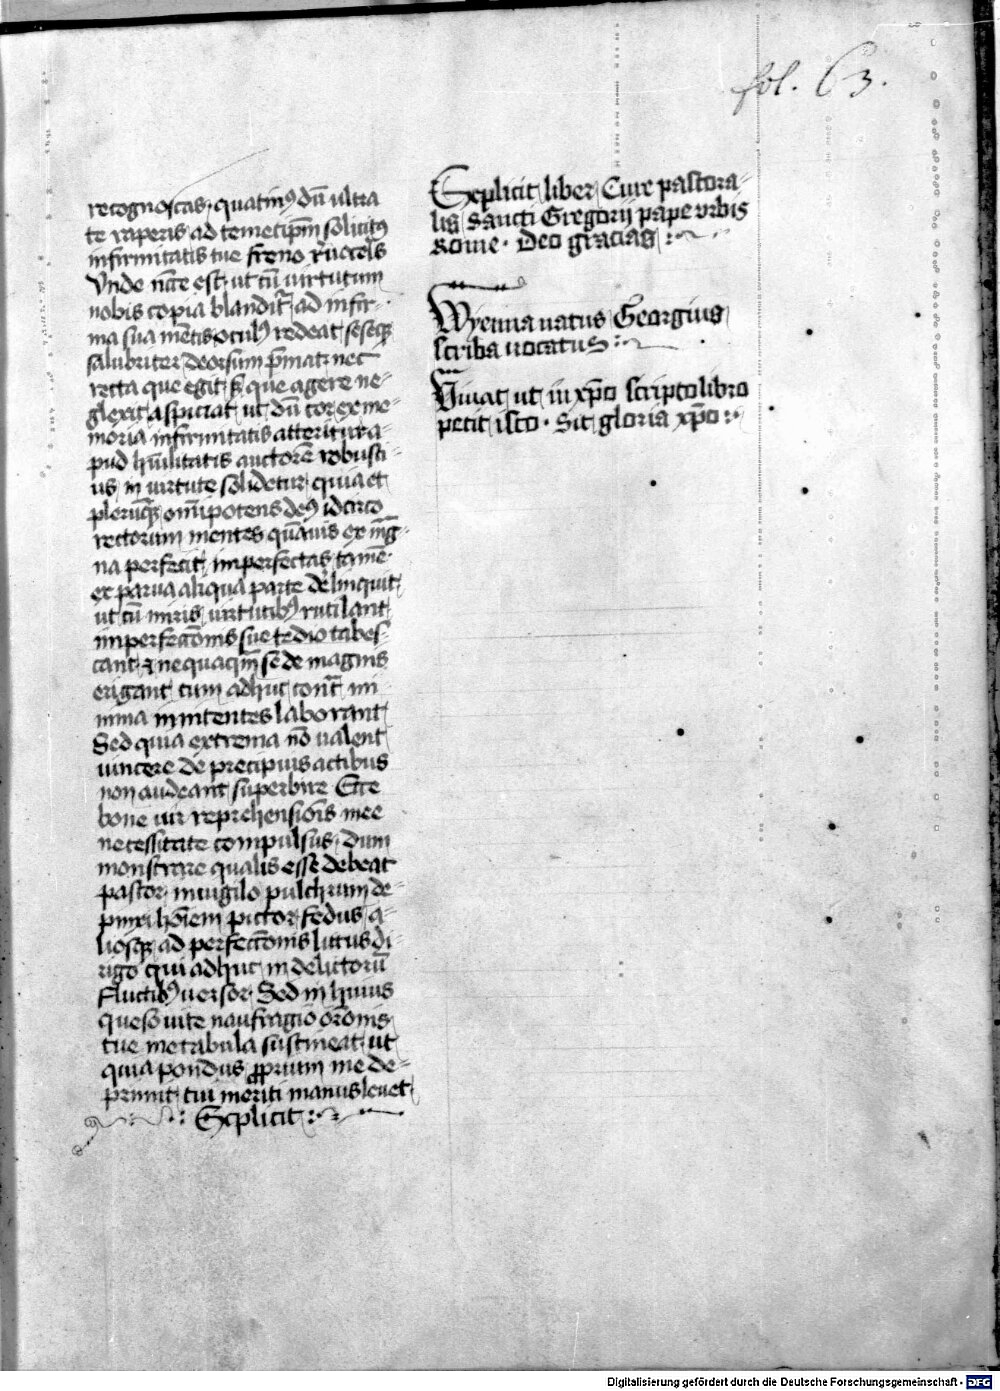 fol. 63.
recognoscas, quatin9 dū ultra
te raperis ad temetipm̄ solicit9
infirmitatis tue freno r̄uoceris
Vnde nēce est, ut cū uirtutum
nobis copia blandit̄, ad infir-
ma sua mētis ocul9 redeat, seseqꝫ
salubriter deorsum p̄mat, nec
recta que egit, sꝫ que agere ne-
glexit aspiciat, ut dū cor ex me-
moria infirmitatis atteritur, a-
pud hūilitatis auctorē robusti-
us in uirtute solidetur, quia et
plerūqꝫ omīpotens de9 idcirco
rectorum mentes quāuis ex mag-
na perfecit, imperfectas tamē
ex parua aliqua parte delinquit,
ut cū miris uirtutib9 rutilant,
imperfecc̄onis sue tedio tabes-
cant, ⁊ nequaqm̄ se de magnis
erigant, cum adhuc cont̄ mi
nima innitentes laborant
Sed quia extrema nō ualent
uincere de precipuis actibus
non audeant superbire Ecce
bone uir reprehensiōis mee
necessitate compulsus, dum
monstrare qualis esse debeat
pastor inuigilo pulchrum de-
pinxi hōiem pictor fedus, a-
liosqꝫ ad perfecc̄onis littus di-
rigo qui adhuc in delictorū
fluctib9 uersor. Sed in huius
queso uite naufragio orōonis
tue me tabula sustineat, ut
quia pondus ꝓprium me de-
primit, tui meriti manus leuet,
Explicit
Explicit liber Cure pastora-
lis Sancti Gregorij pape vrbis
Rome. Deo gracias
Wyenna natus Georgius
scriba uocatus
Viuat, ut in xp̄o scripto libro
petit isto. Sit gloria xp̄o
Digitalisierung gefördert durch die Deutsche Forschungsgemeinschaft - DFG